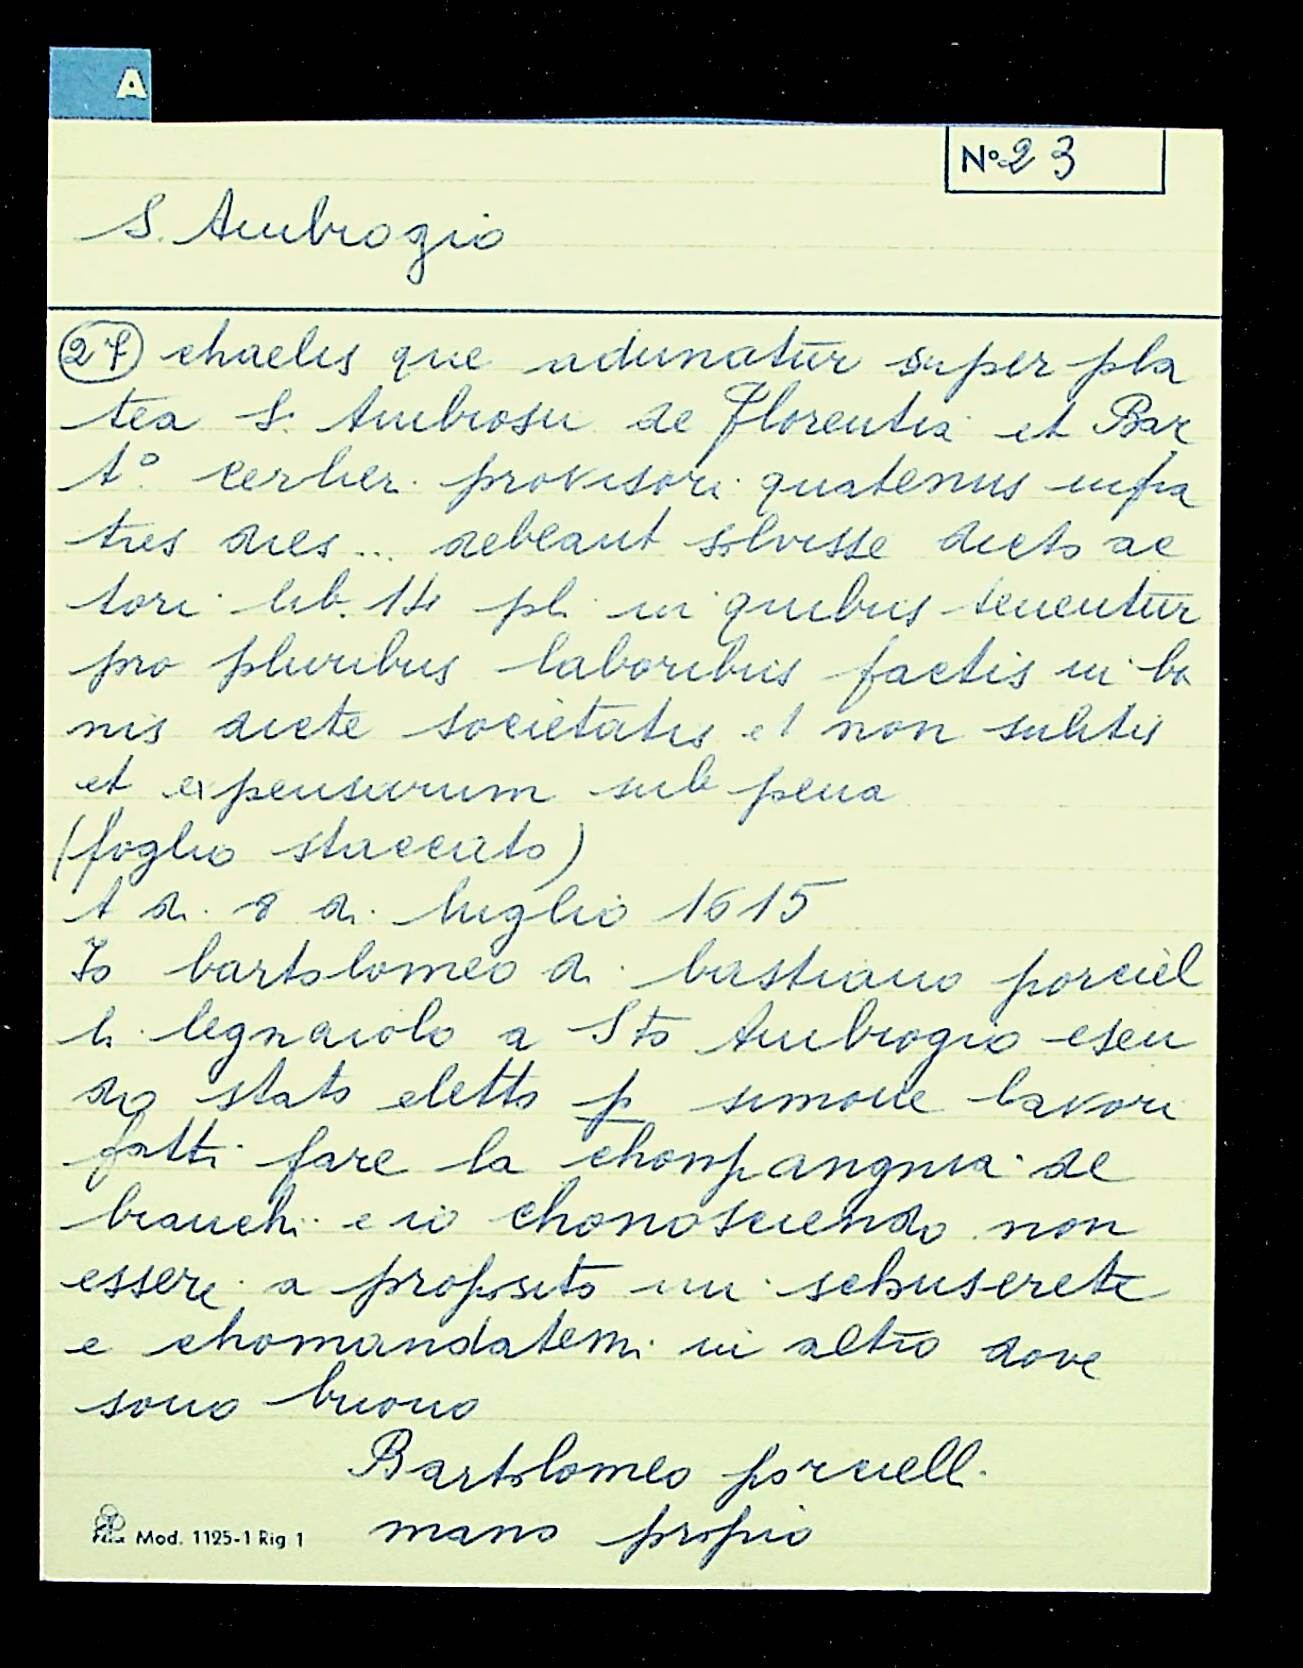 A
N° 23
S. Ambrogio
27 chaelis que adunatur super pla
tea S. Ambrosii de Florentia et Bar
t° cerlier. provisori quatenus infra
tres dies... debeant solvisse dicto ac
tori lib. 14 pl. in quibus tenentur
pro pluribus laboribus factis in bo
nis dicte societatis et non solutis
et expensarum sub pena
(foglio staccato)
A di 8 di luglio 1615
Io bartolomeo di bastiano porciel
li legnaiolo a Sto Ambrogio esen
do stato eletto p simone lavori
fatti fare la chonpangnia de
bianchi e io chonosciendo non
essere a proposito mi schuserete
e chomandatemi in altro dove
sono buono
Bartolomeo porcielli
mano propio
Mod. 1125-1 Rig 1